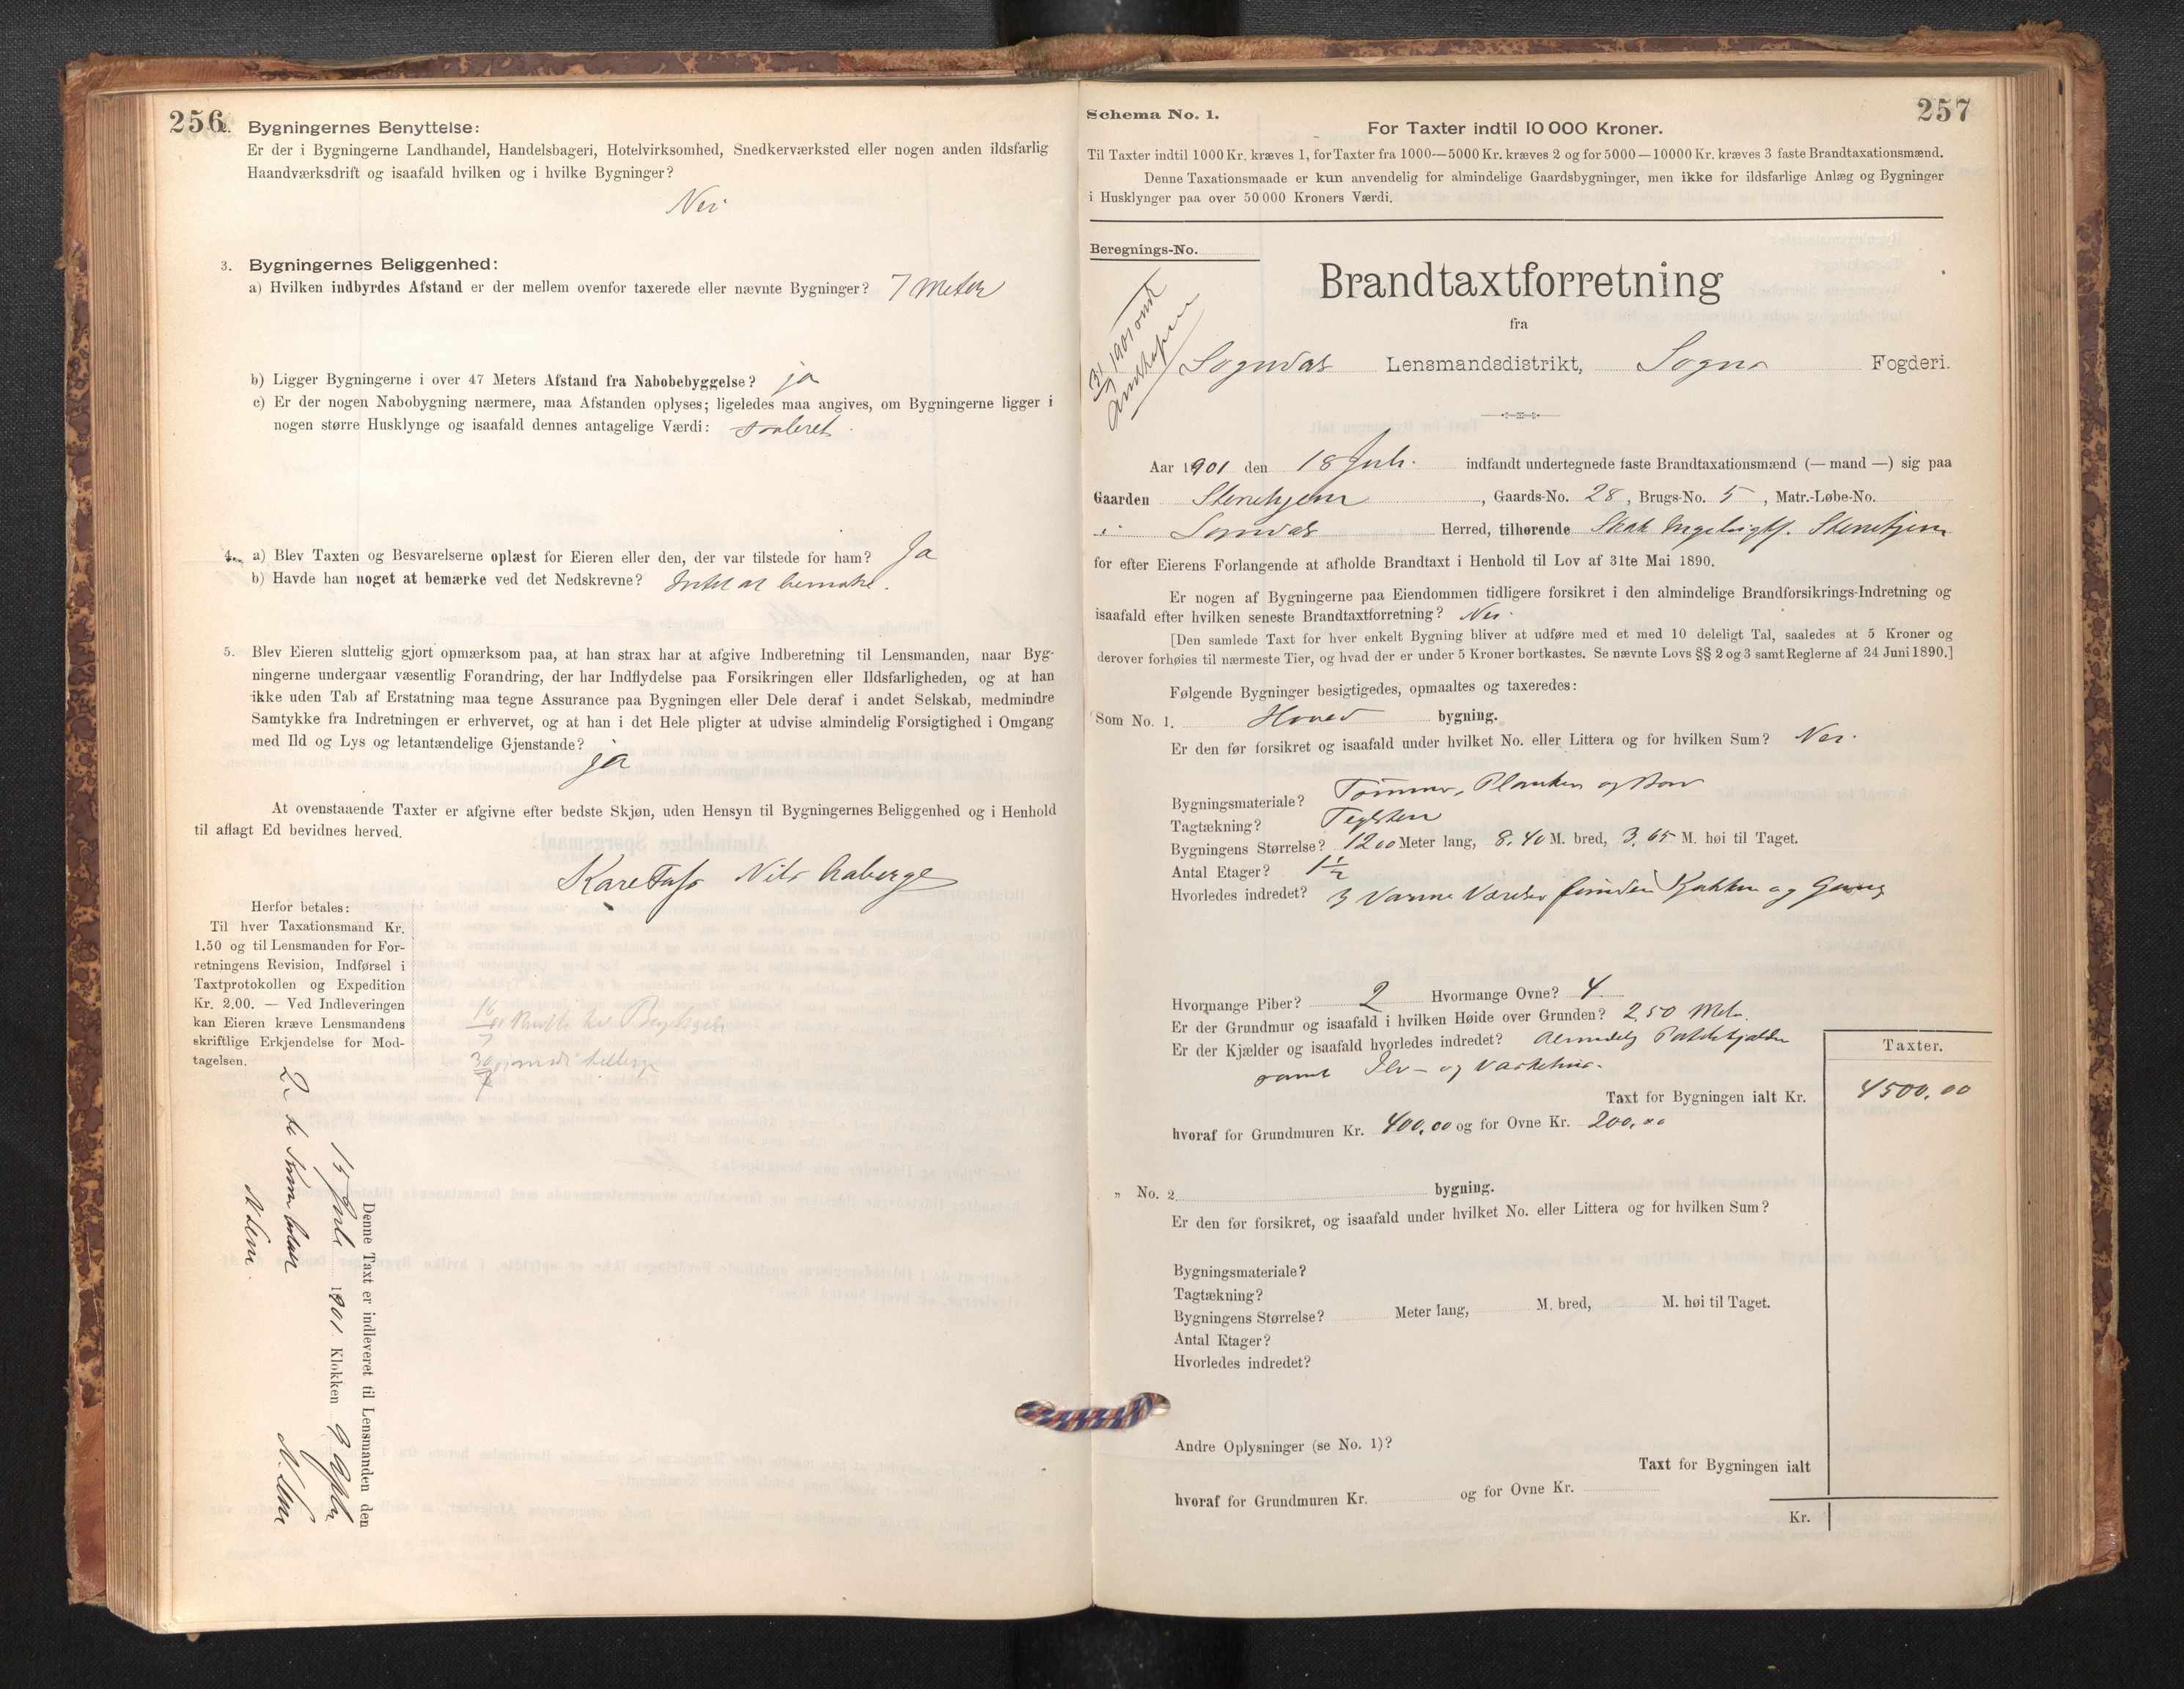 256
2. Bygningernes Benyttelse:
Er der i Bygningerne Landhandel, Handelsbageri, Hotelvirksomhed, Snedkerværksted eller nogen anden ildsfarlig
Haandværksdrift og isaafald hvilken og i hvilke Bygninger?
Nei
3. Bygningernes Beliggenhed:
a) Hvilken indbyrdes Afstand er der mellem ovenfor taxerede eller nævnte Bygninger? 7 Meter
b) Ligger Bygningerne i over 47 Meters Afstand fra Nabobebyggelse? ja
c) Er der nogen Nabobygning nærmere, maa Afstanden oplyses; ligeledes maa angives, om Bygningerne ligger i
nogen større Husklynge og isaafald dennes antagelige Værdi:
4. a) Blev Taxten og Besvarelserne oplæst for Eieren eller den, der var tilstede for ham? Ja
b) Havde han noget at bemærke ved det Nedskrevne? Intet at bemærke.
5. Blev Eieren sluttelig gjort opmærksom paa, at han strax har at afgive Indberetning til Lensmanden, naar Byg-
ningerne undergaar væsentlig Forandring, der har Indflydelse paa Forsikringen eller Ildsfarligheden, og at han
ikke uden Tab af Erstatning maa tegne Assurance paa Bygningen eller Dele deraf i andet Selskab, medmindre
Samtykke fra Indretningen er erhvervet, og at han i det Hele pligter at udvise almindelig Forsigtighed i Omgang
med Ild og Lys og letantændelige Gjenstande?
ja
At ovenstaaende Taxter er afgivne efter bedste Skjøn, uden Hensyn til Bygningernes Beliggenhed og i Henhold
til aflagt Ed bevidnes herved.
Nils Aaberge
Herfor betales:
Til hver Taxationsmand Kr.
1.50 og til Lensmanden for For-
retningens Revision, Indførsel i
Taxtprotokollen og Expedition
Kr. 2.00. — Ved Indleveringen
kan Eieren kræve Lensmandens
skriftlige Erkjendelse for Mod-
tagelsen.
Denne Taxt er indleveret til Lensmanden den
1901 Klokken 9
257
Schema No. 1.
For Taxter indtil 10 000 Kroner.
Til Taxter indtil 1000 Kr. kræves 1, for Taxter fra 1000—5000 Kr. kræves 2 og for 5000—10000 Kr. kræves 3 faste Brandtaxationsmænd.
Denne Taxationsmaade er kun anvendelig for almindelige Gaardsbygninger, men ikke for ildsfarlige Anlæg og Bygninger
i Husklynger paa over 50 000 Kroners Værdi.
Beregnings-No.
Brandtaxtforretning
fra
Sogndals Lensmandsdistrikt, Sogns Fogderi.
Aar 1901 den 18 Juli. indfandt undertegnede faste Brandtaxationsmænd (— mand —) sig paa
Gaarden Stenehjem, Gaards-No. 28, Brugs-No. 5, Matr.-Løbe-No.
i Sogndals Herred, tilhørende Stenehjem
for efter Eierens Forlangende at afholde Brandtaxt i Henhold til Lov af 31te Mai 1890.
Er nogen af Bygningerne paa Eiendommen tidligere forsikret i den almindelige Brandforsikrings-Indretning og
isaafald efter hvilken seneste Brandtaxtforretning? Nei.
[Den samlede Taxt for hver enkelt Bygning bliver at udføre med et med 10 deleligt Tal, saaledes at 5 Kroner og
derover forhøies til nærmeste Tier, og hvad der er under 5 Kroner bortkastes. Se nævnte Lovs §§ 2 og 3 samt Reglerne af 24 Juni 1890.]
Følgende Bygninger besigtigedes, opmaaltes og taxeredes:
Som No. 1. Hoved bygning.
Er den før forsikret og isaafald under hvilket No. eller Littera og for hvilken Sum? Nei.
Bygningsmateriale? Tømmer, Planker og Bord
Tagtækning? Teglsten
Bygningens Størrelse? 12 00 Meter lang, 8.40 M. bred, 3.65 M. høi til Taget.
Antal Etager? 1½
Hvorledes indredet? 3 Varme Værelser foruden Kjøkken og Gang
Hvormange Piber? 2 Hvormange Ovne? 4.
Er der Grundmur og isaafald i hvilken Høide over Grunden? 2.50 Met.
Er der Kjælder og isaafald hvorledes indredet? Almindelig Potetkjælder
samt Ild- og Vaskehus.
Taxter.
Taxt for Bygningen ialt Kr. 4500,00
hvoraf for Grundmuren Kr. 400,00 og for Ovne Kr. 200,00
„ No. 2. bygning.
Er den før forsikret, og isaafald under hvilket No. eller Littera og for hvilken Sum?
Bygningsmateriale?
Tagtækning?
Bygningens Størrelse? Meter lang, M. bred, M. høi til Taget.
Antal Etager?
Hvorledes indredet?
Andre Oplysninger (se No. 1)?
Taxt for Bygningen ialt
hvoraf for Grundmuren Kr. og for Ovne Kr.
Kr.